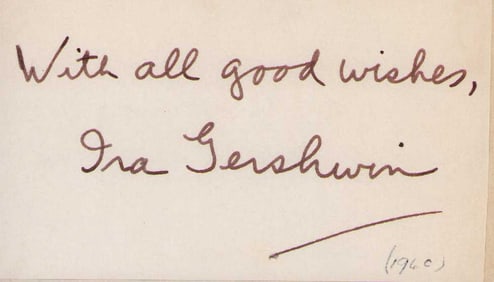 With all good wishes,
Ira Gershwin
(1960)